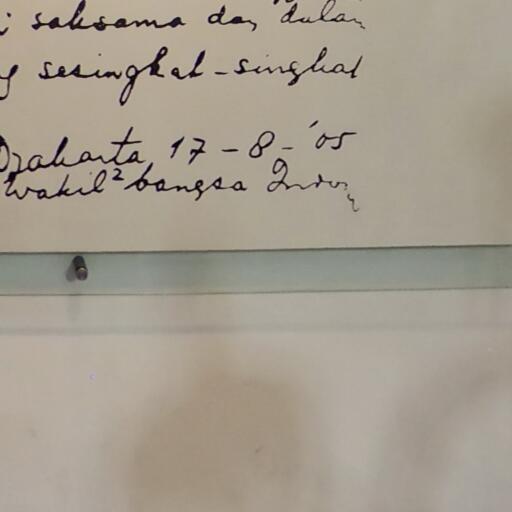 saksama dan dalam
sesingkat-singkat
Djakarta, 17 - 8 - '05
Wakil² bangsa Indon